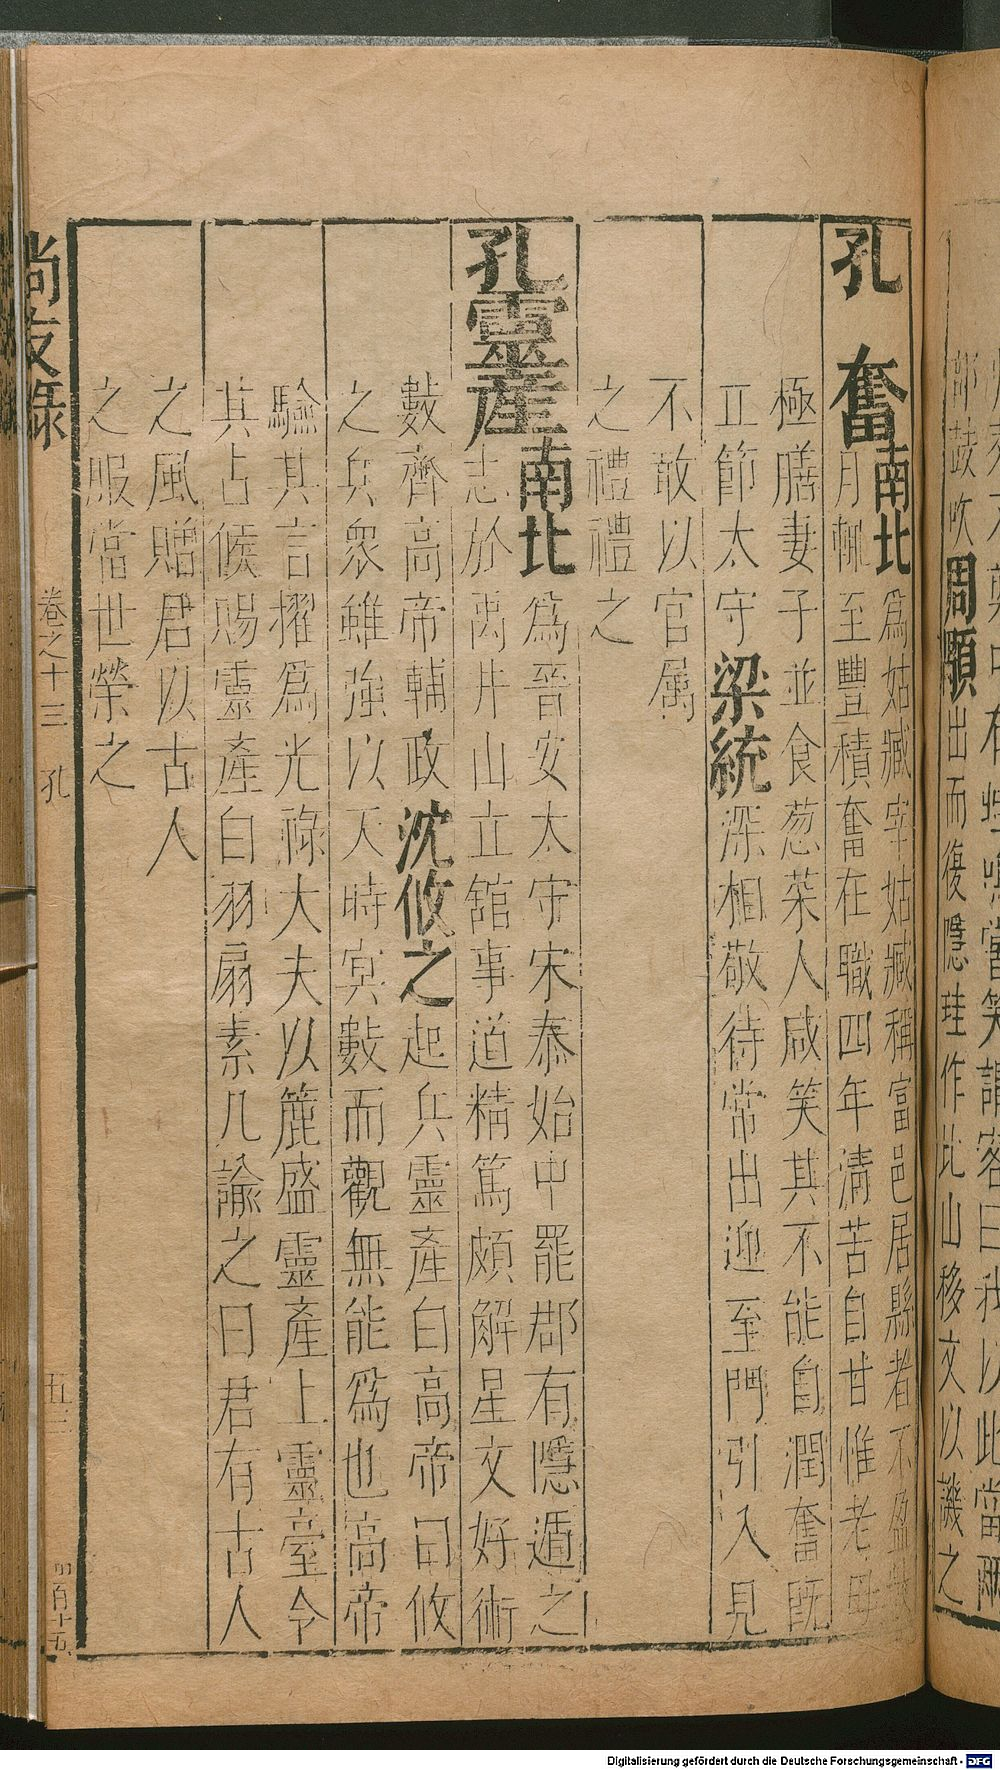 鼓吹周顒出而復隱珪作北山移文以譏之
孔奮南北爲姑臧宰姑臧稱富邑居縣者不盈數
月輒至豐積奮在職四年淸苦自甘惟老母
極膳妻子並食葱菜人咸笑其不能自潤奮旣
立節太守梁統深相敬待常出迎至門引入見
不敢以官属
之禮禮之
孔靈産南北爲晉安太守宋泰始中罷郡有隱遁之
志於禹井山立舘事道精篤頗解星文好術
數齊高帝輔政沈攸之起兵靈産白高帝曰攸
之兵衆雖强以天時㝠數而觀無能爲也高帝
驗其言擢爲光祿大夫以簏盛靈産上靈臺令
其占候賜靈産白羽扇素几諭之曰君有古人
之風贈君以古人
之服當世榮之
尚友錄
卷之十三
孔
五三
Digitalisierung gefördert durch die Deutsche Forschungsgemeinschaft - DFG